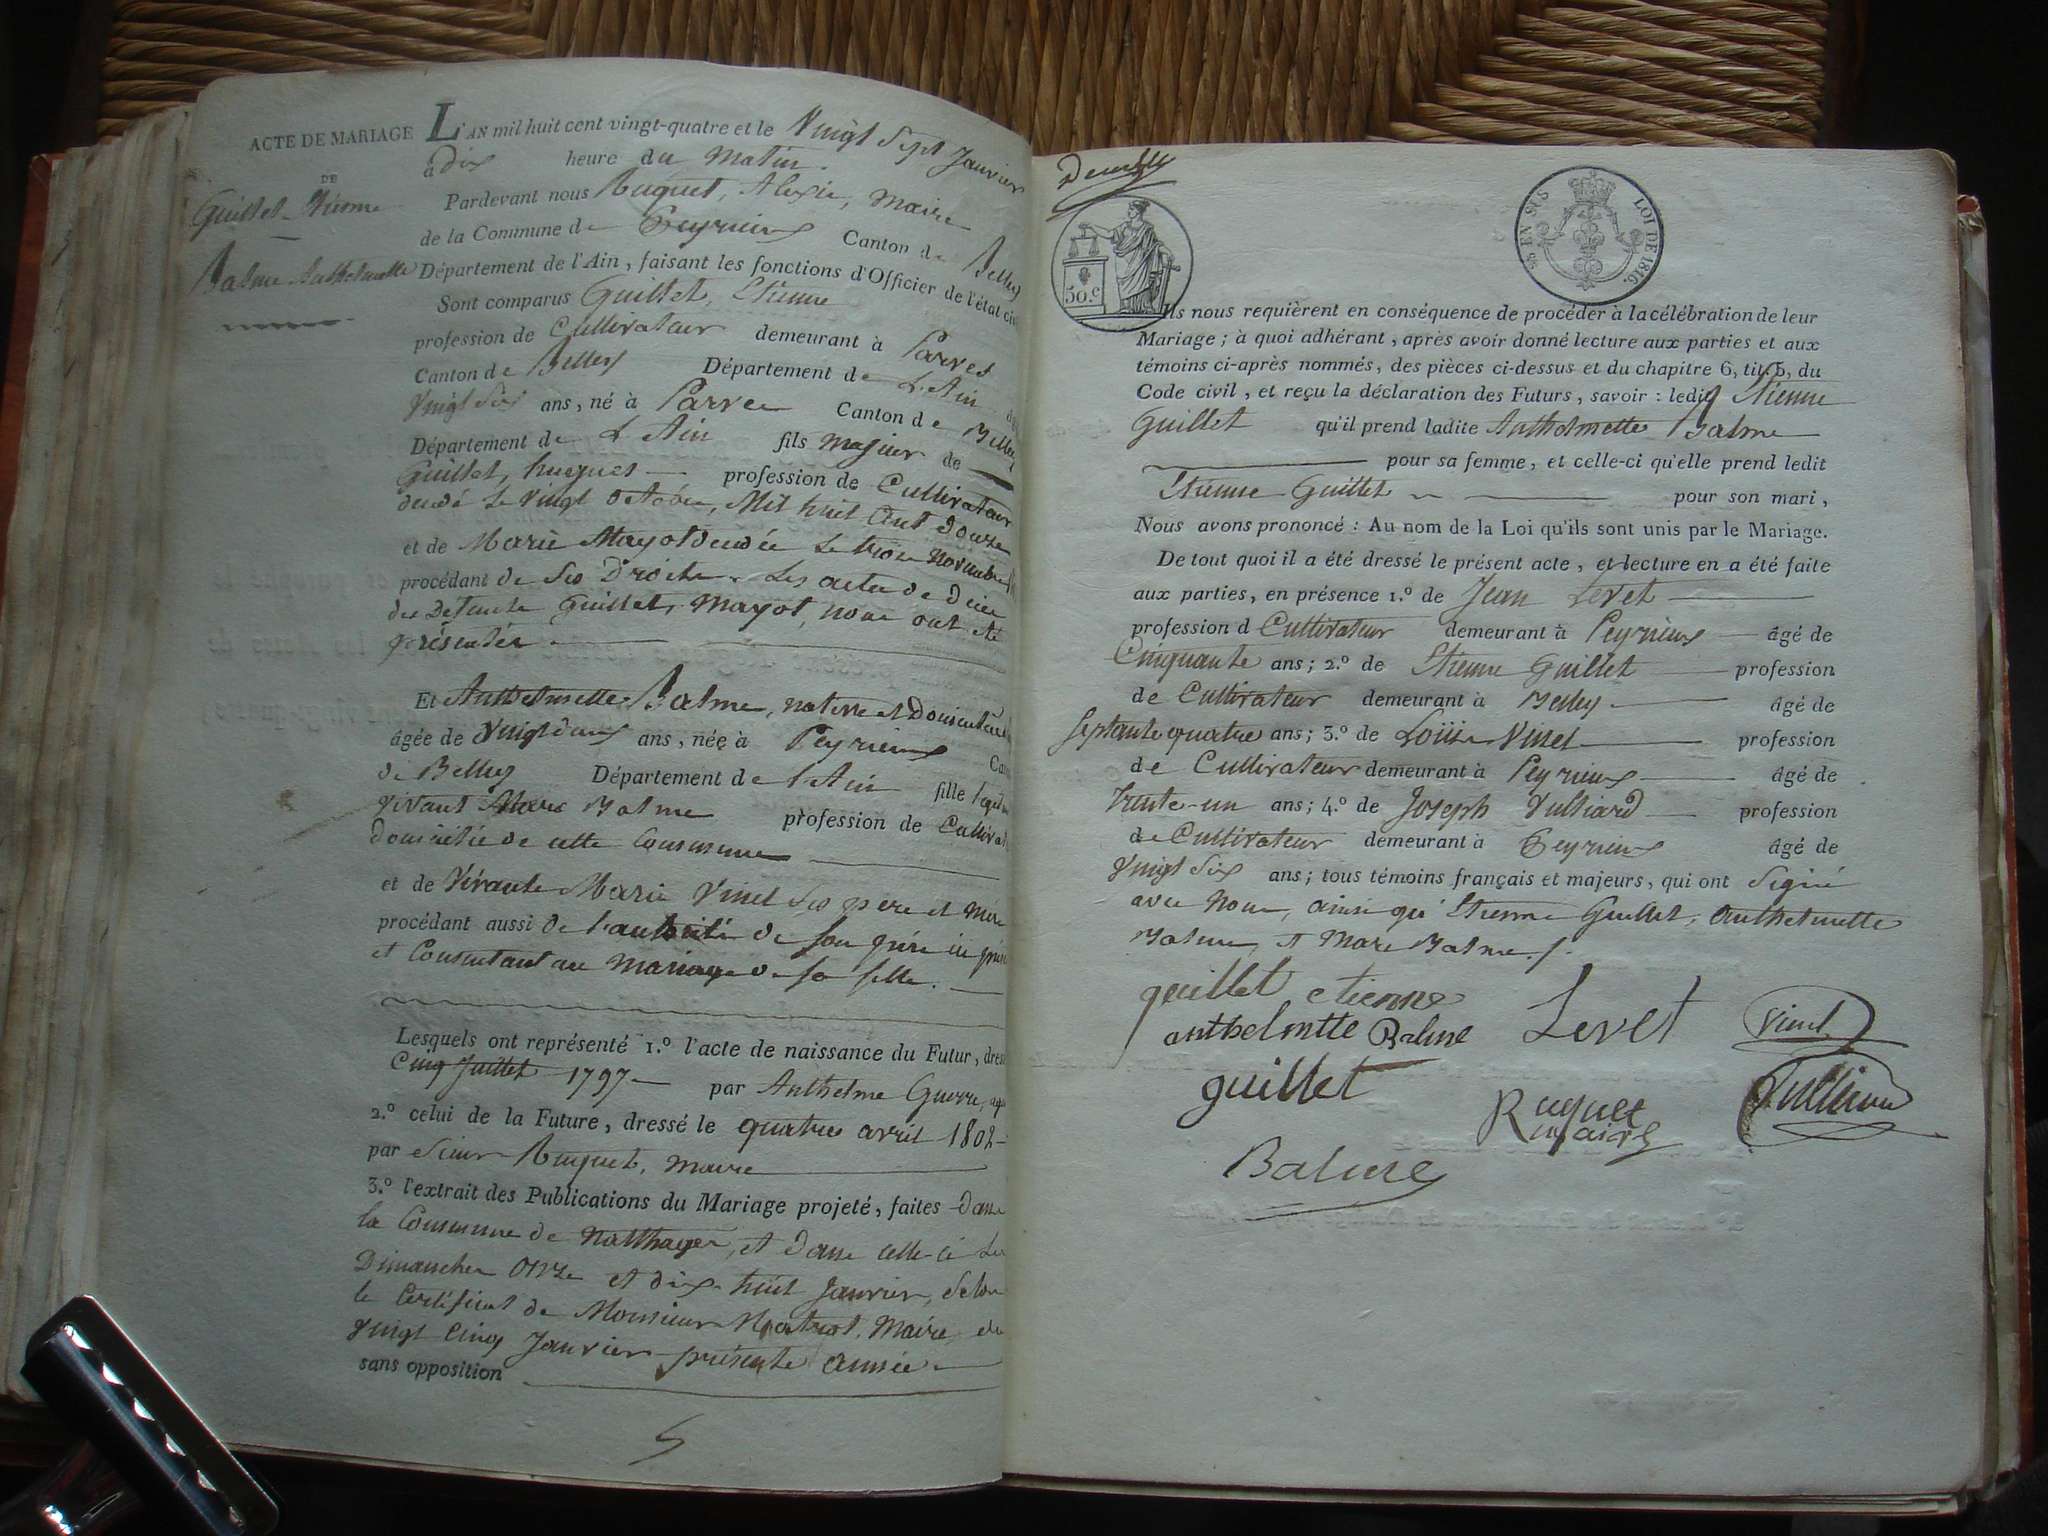 ACTE DE MARIAGE
DE
Guillet Etienne
Balme Anthelmette
L'AN mil huit cent vingt-quatre et le Vingt Sept Janvier
à dix heure du Matin
Pardevant nous Ruquet, Alexis, Maire
de la Commune de Peyrieux Canton de Belley
Département de l'Ain, faisant les fonctions d'Officier de l'état
Sont comparus Guillet, Etienne
profession de Cultivateur demeurant à Parves
Canton de Belley Département de L'Ain
Vingt Six ans, né à Parves Canton de Belley
Département de L'Ain fils majeur de
Guillet, hugues profession de Cultivateur
décédé Le Vingt octobre, Mil huit Cent Douze
et de Marie Mayot décédée Le trois Novembre
procédant de Ses Droits. Les actes de décès
des Défunts Guillet, Mayot, nous ont été
présentés
Et Anthelmette Balme, native et Domiciliée
âgée de Vingt deux ans, née à Peyrieux
de Belley Département de l'Ain fille
vivant Marc Balme profession de
Domicilié de cette Commune
et de Vivante Marie Vinet Ses père et Mère
procédant aussi de l'autorité de Son père ici
et Consentant au Mariage de Sa fille.
Lesquels ont représenté 1.º l'acte de naissance du Futur,
Cinq Juillet 1797 par Anthelme Guerre,
2.º celui de la Future, dressé le quatre avril 1802
par Sieur Ruquet, maire
3.º l'extrait des Publications du Mariage projeté, faites dans
la Commune de Natthages, et dans celle-ci Les
Dimanches Onze et dix-huit Janvier, Selon
le Certificat de Monsieur Maire du
Vingt Cinq Janvier présente année
sans opposition
50.c
EN SUS
LOI DE 1816.
Ils nous requièrent en conséquence de procéder à la célébration de leur
Mariage; à quoi adhérant, après avoir donné lecture aux parties et aux
témoins ci-après nommés, des pièces ci-dessus et du chapitre 6, tit. 5, du
Code civil, et reçu la déclaration des Futurs, savoir: ledit Etienne
Guillet qu'il prend ladite Anthelmette Balme
pour sa femme, et celle-ci qu'elle prend ledit
Etienne Guillet pour son mari,
Nous avons prononcé: Au nom de la Loi qu'ils sont unis par le Mariage.
De tout quoi il a été dressé le présent acte, et lecture en a été faite
aux parties, en présence 1.º de Jean Levet
profession d Cultivateur demeurant à Peyrieux âgé de
Cinquante ans; 2.º de Etienne Guillet profession
de Cultivateur demeurant à Belley âgé de
Septante quatre ans; 3.º de Louis Vinet profession
de Cultivateur demeurant à Peyrieux âgé de
Trente-un ans; 4.º de Joseph Vulliard profession
de Cultivateur demeurant à Peyrieux âgé de
Vingt Six ans; tous témoins français et majeurs, qui ont Signé
avec Nous, ainsi qu'Etienne Guillet, Anthelmette
Balme, et Marc Balme.
guillet etienne
anthelmtte Balme
Levet
Vinet
guillet
Ruquet
maire
Balme